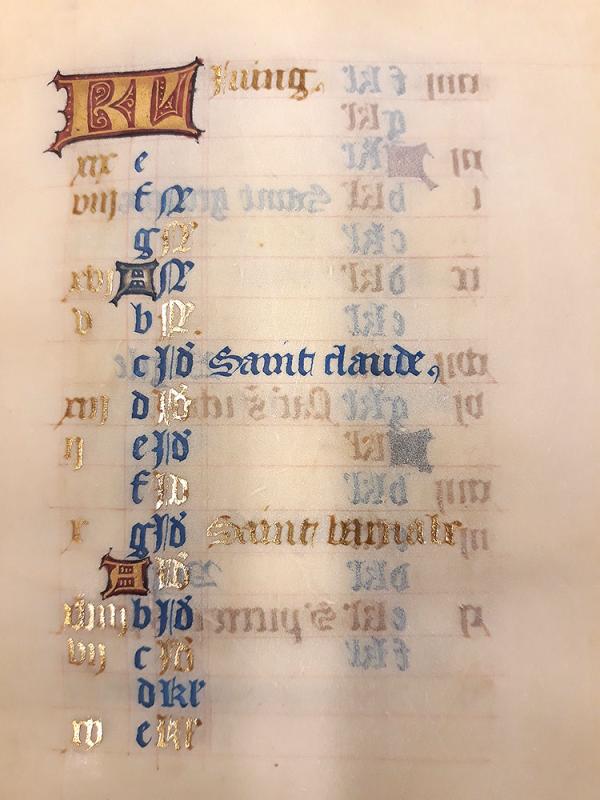 KL Juing.
xix e
viij f Ne
g Ne
xvj A Ne
v b Ne
c Id Saint claude,
xiij d Id
ij e Id
f Id
x g Id Saint barnabe
A Id
xviij b Id
vij c Id
d kl
xv e kl